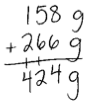 158 g
+ 266 g
424 g